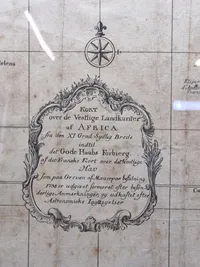 KORT
over de Vestlige Landkanter
af AFRICA
fra den XI Grad Sydlig Brede
indtil
det Gode Haabs Forbierg
af det Franske Kort over det
Hav
som paa Greven af Maurepas befalning
er udgivet formeret efter
Anmærkninger og udkastet efter
Astronomiske Iagttagelser